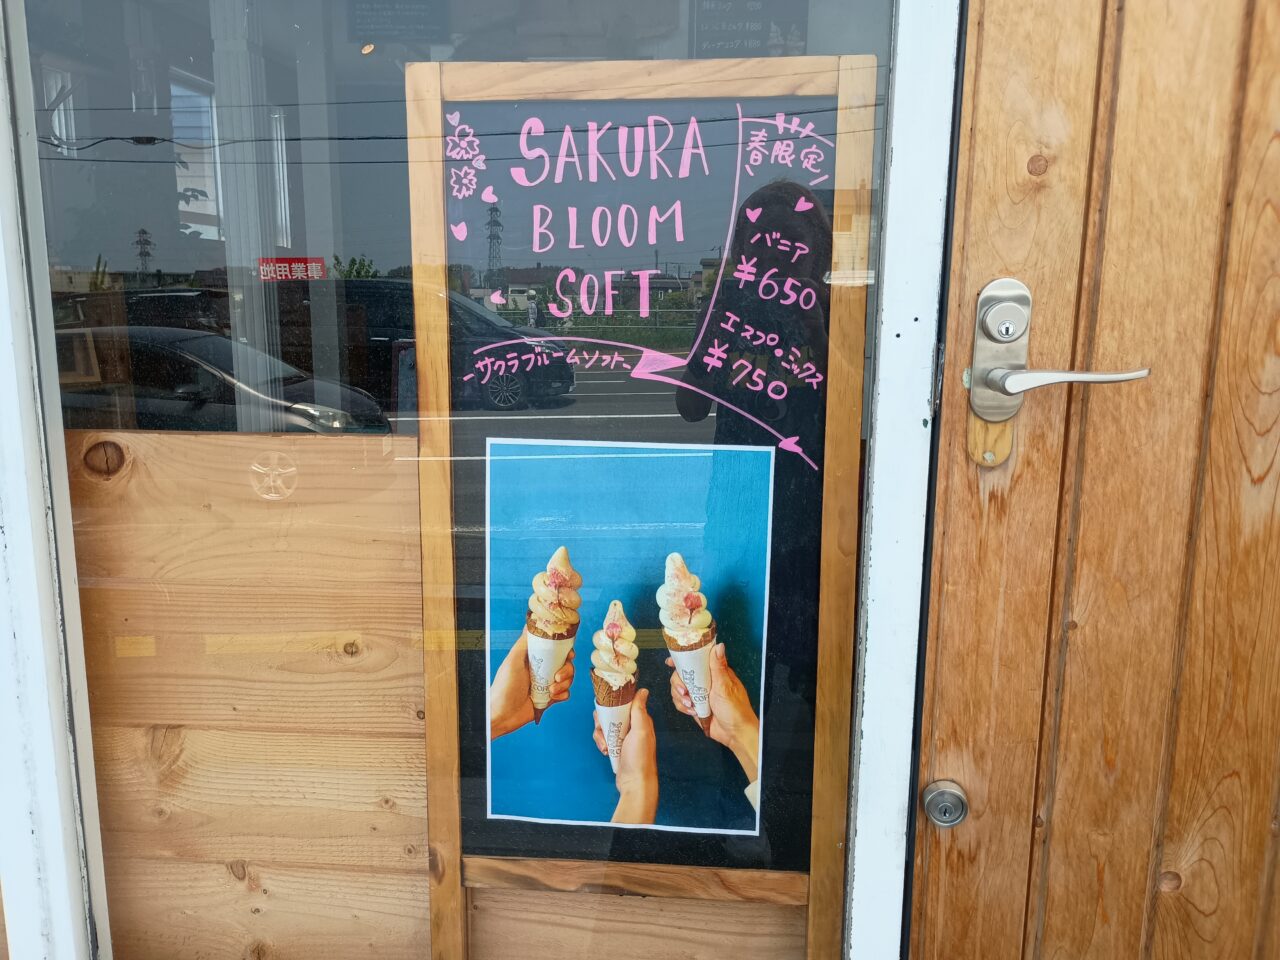 SAKURA
BLOOM
SOFT
-サクラブルームソフト-
春限定
バニラ
¥650
エスプ。ミックス
¥750
事業用地